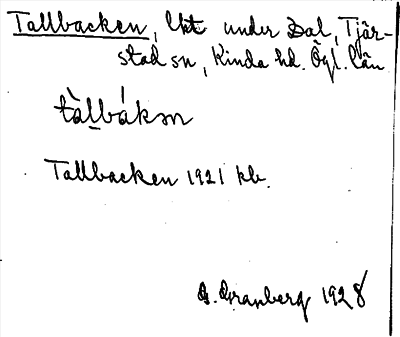 Tallbacken, lht under Dal, Tjär-
stad sn, Kinda hd. Ögl. län
tàl̠bákən
Tallbacken 1921 kb.
G. Granberg 1928